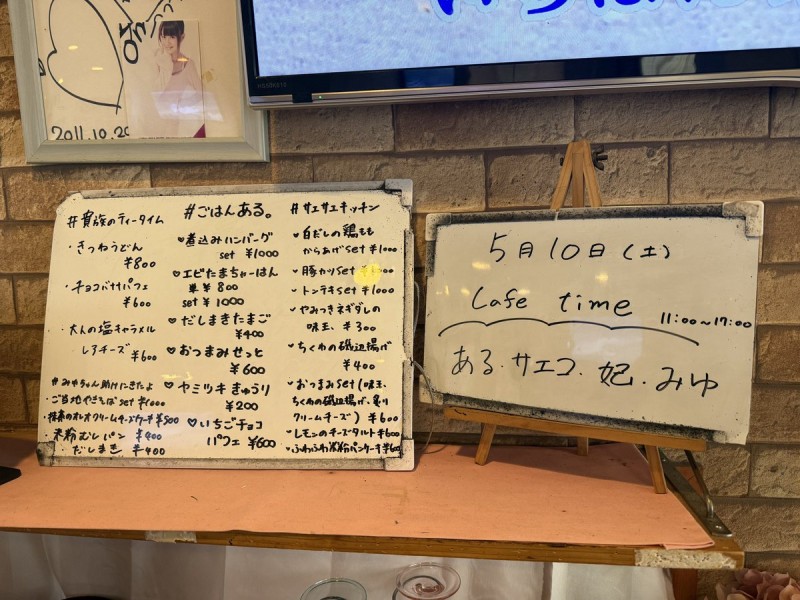 2011.10.20
#貴族のティータイム
・きつねうどん
¥800
・チョコバナナパフェ
¥600
・大人の塩キャラメル
レアチーズ ¥600
#みゆちゃん助けにきたよ
・ご当地やきそば set ¥1000
オレオクリームチーズケーキ ¥500
米粉むしパン ¥400
だしまき ¥400
#ごはんある。
♥煮込みハンバーグ
set ¥1000
♥エビたまちゃーはん
単 ¥800
set ¥1000
♥だしまきたまご
¥400
♥おつまみせっと
¥600
♥ヤミツキきゅうり
¥200
♡いちごチョコ
パフェ ¥600
#サエサエキッチン
♥白だしの鶏もも
からあげset ¥1000
♥豚カツset
♥トンテキset ¥1000
♥やみつきネギダレの
味玉 ¥300
♥ちくわの磯辺揚げ
¥400
♥おつまみset(味玉、
ちくわの磯辺揚げ、炙り
クリームチーズ) ¥600
♥レモンのチーズタルト ¥600
♥ふわふわ米粉パンケーキ ¥600
5月10日(土)
Cafe time
11:00~17:00
ある.サエコ.妃.みゆ